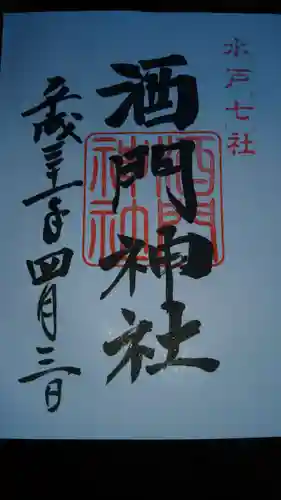 水戸七社
酒門神社
酒門神社
平成三十一年四月三日